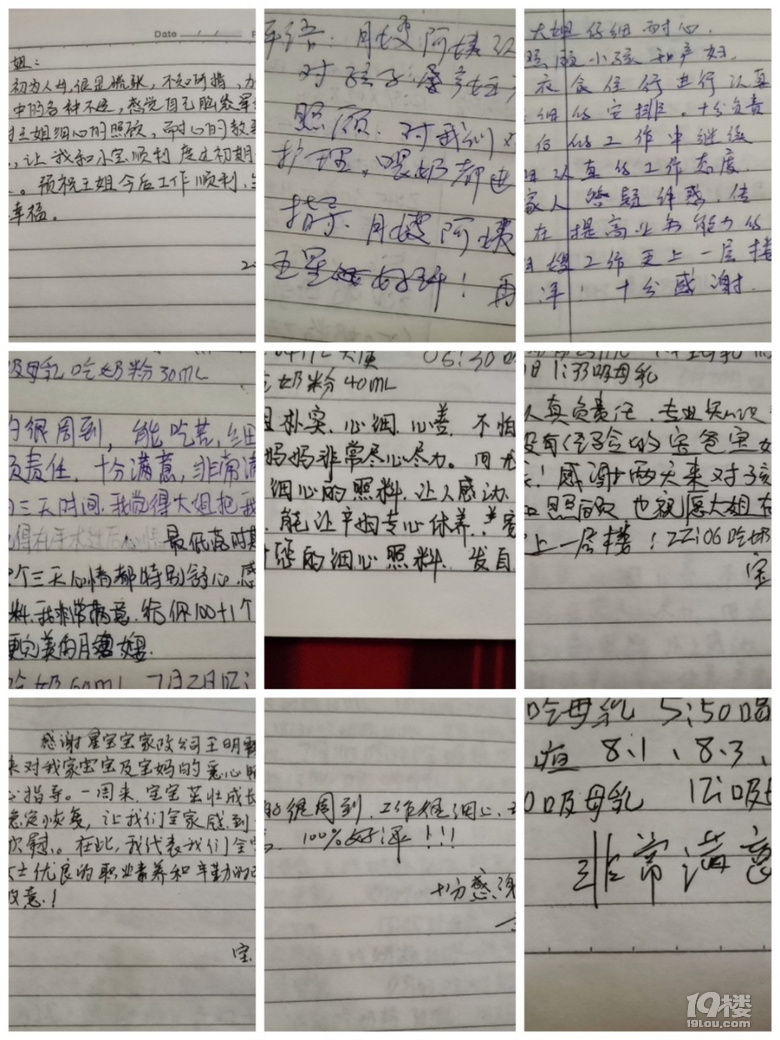 Date
姐：
初为人母，很是慌张，不知所措，
中的各种不适，感觉自己脑袋
王姐细心的照顾，耐心的教
，让我和小宝顺利度过初期
。预祝王姐今后工作顺利，
幸福。
评语：月嫂阿姨
对孩子
照顾．对我们
护理、喂奶都
指导．月嫂阿姨
五星 好评！再
大姐仔细耐心．
照顾小孩和产妇．
衣食住行进行认真
细的安排．十分负责
的工作中继续
认真的工作态度．
家人答疑解惑．
在提高业务能力的
嫂工作更上一层楼
评！十分感谢．
吸母乳吃奶粉30ML
的很周到，能吃苦，细
负责任．十分满意，非常满
三天时间．我觉得大姐把我
最低落时期
个三天心情都特别舒心．感
料．我非常满意．给你100+1个
更完美的月嫂．
吃奶60ml 7月2日
06:30
吃奶粉40ML
且朴实．心细．心善．不怕
妈妈非常尽心尽力。
细心的照料．让人感动．
能让产妇专心休养．
的细心照料．发自
1:33吸母乳
认真负责任．专业知识
没有经验的宝爸宝
！感谢两天来对孩
照顾 也祝愿大姐
上一层楼！22:06吃奶
宝
感谢星宝宝家政公司王明
来对我家宝宝及宝妈的爱心
心指导。一周来，宝宝茁壮成长
稳定恢复，让我们全家感到
欣慰。在此，我代表我们全
女士优良的职业素养和辛勤的
敬意！
宝
的很周到．工作很细心．
100%好评！！！
十分感谢
吃母乳 5:50喝
疸 8.1、8.3、
吸母乳 12:吸
非常满意
19楼
19lou.com